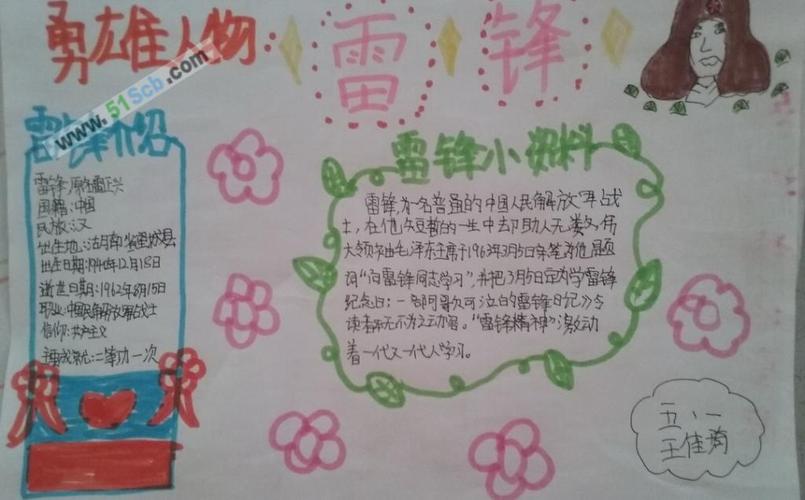 勇雄人物
雷锋
www.51Scb.com
雷锋介绍
雷锋,原名雷正兴
国籍:中国
民族:汉
出生地:湖南省望城县
出生日期:1940年12月18日
逝世日期:1962年8月15日
职业:中国人民解放军战士
信仰:共产主义
主要成就:二等功一次
雷锋小资料
雷锋为一名普通的中国人民解放军战
士,在他短暂的一生中却助人无数,伟
大领袖毛泽东主席于1963年3月5日亲笔为他题
词“向雷锋同志学习”,并把3月5日定为学雷锋
纪念日;一部可歌可泣的雷锋日记》令
读者无不为之动容。“雷锋精神”激动
着一代又一代人学习。
五、一
王佳